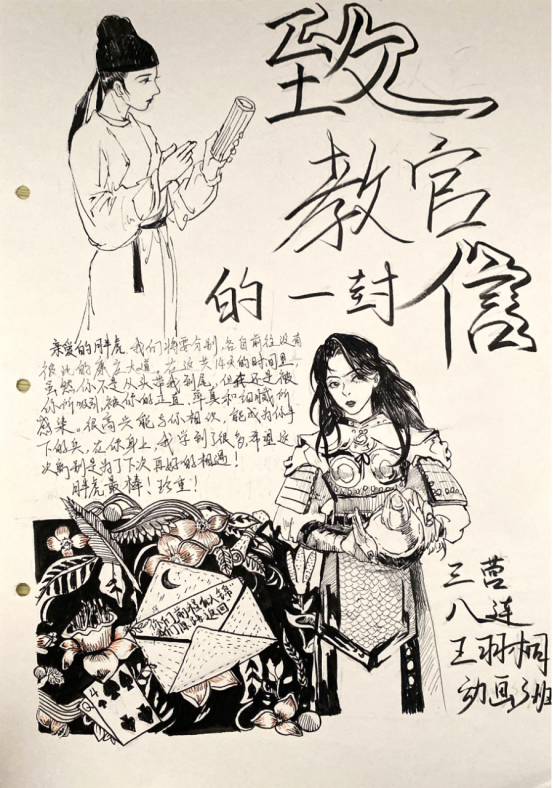 致
教官
的一封信
亲爱的胖虎,我们将要分别,各自前往没有
彼此的康庄大道,在这共14天的时间里,
虽然你不是从头带我到尾,但我还是被
你所吸引,被你的正直、率真和
感染。很高兴能与你相识,能成为你手
下的兵,在你身上,我学到了很多
次离别是为了下次更好的相遇!
胖虎最棒!珍重!
4
三营
八连
王羽桐
动画3班